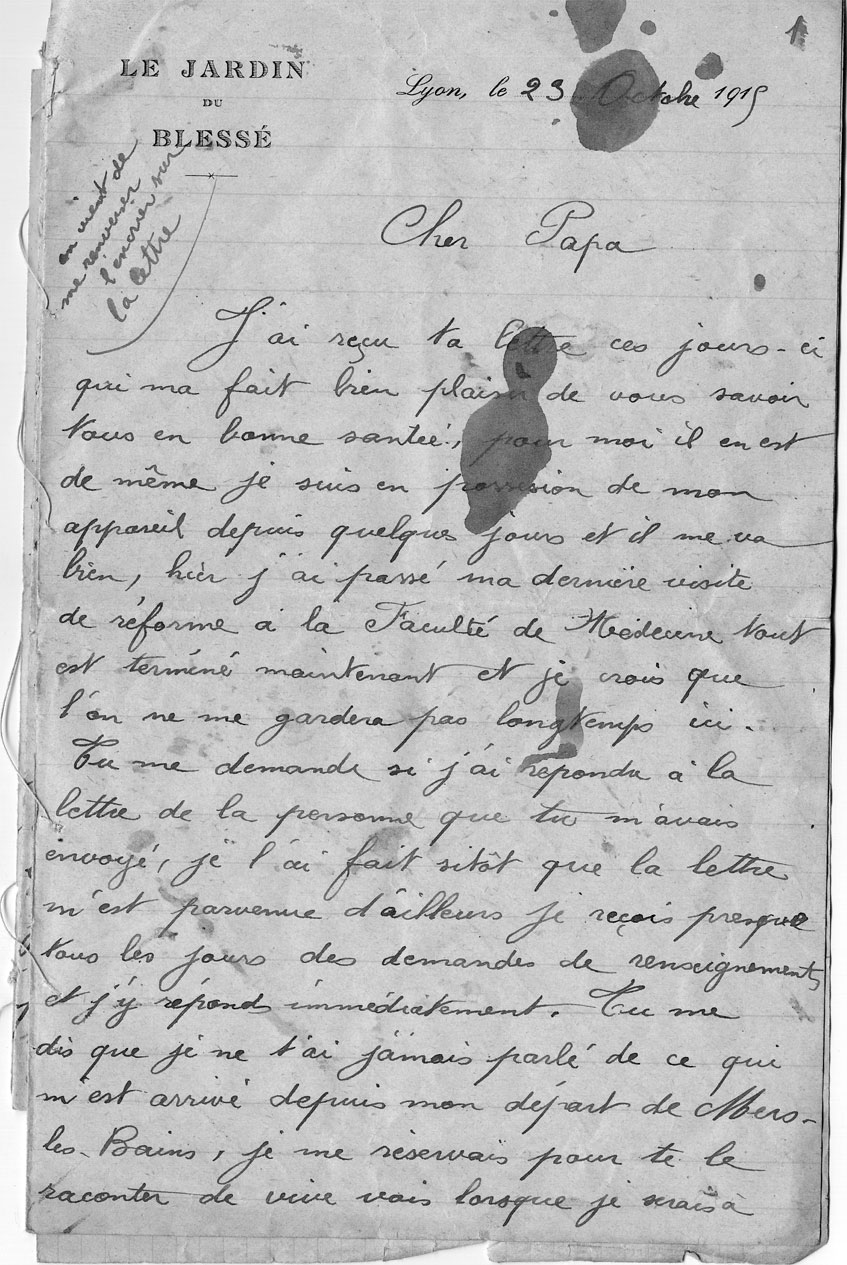 1
LE JARDIN
DU
BLESSÉ
Lyon, le 23 Octobre 1915
on vient de
me renverser
l'encrier sur
la lettre
Cher Papa
J'ai reçu ta lettre ces jours-ci
qui ma fait bien plaisir de vous savoir
tous en bonne santée, pour moi il en est
de même je suis en possession de mon
appareil depuis quelques jours et il me va
bien, hier j'ai passé ma dernière visite
de réforme à la Faculté de Médecine tout
est terminé maintenant et je crois que
l'on ne me gardera pas longtemps ici.
Tu me demande si j'ai répondu à la
lettre de la personne que tu m'avais
envoyé, je l'ai fait sitôt que la lettre
m'est parvenue d'ailleurs je reçois presque
tous les jours des demandes de renseignements
et j'y répond immédiatement. Tu me
dis que je ne t'ai jamais parlé de ce qui
m'est arrivé depuis mon départ de Mers-
les-Bains, je me réservais pour te le
raconter de vive vois lorsque je serais à